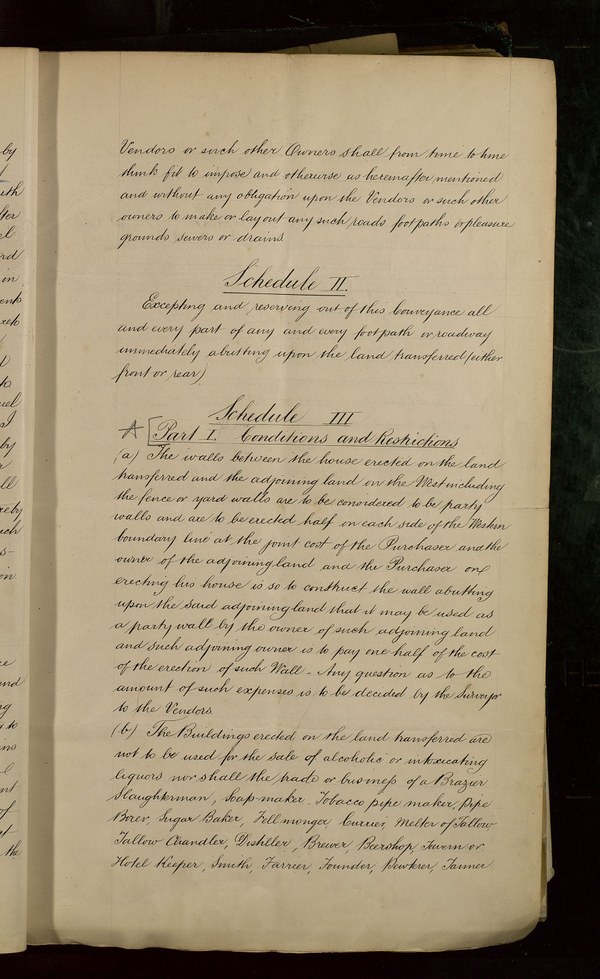 Vendors or such other Owners shall from time to time
think fit to impose and otherwise as hereinafter mentioned
and without any obligation upon the Vendors or such other
owners to make or lay out any such roads footpaths or pleasure
grounds sewers or drains
Schedule II.
Excepting and reserving out of this Conveyance all
and every part of any and every footpath or roadway
immediately abutting upon the land transferred (either
front or rear)
Schedule III
A [Part I. Conditions and Restrictions
(a) The walls between the house erected on the land
transferred and the adjoining land on the West including
the fence or yard walls are to be considered to be party
walls and are to be erected half on each side of the Western
boundary line at the joint cost of the Purchaser and the
owner of the adjoining land and the Purchaser on
erecting his house is so to construct the wall abutting
upon the said adjoining land that it may be used as
a party wall by the owner of such adjoining land
and such adjoining owner is to pay one half of the cost
of the erection of such Wall - Any question as to the
amount of such expenses is to be decided by the Surveyor
to the Vendors
(b) The Buildings erected on the land transferred are
not to be used for the sale of alcoholic or intoxicating
liquors nor shall the trade or business of a Brazier
Slaughterman, Soap-maker, Tobacco pipe maker, Pipe
Borer, Sugar Baker, Fellmonger, Currier, Melter of Tallow
Tallow Chandler, Distiller, Brewer, Beershop, Tavern or
Hotel Keeper, Smith, Farrier, Founder, Pewterer, Tanner